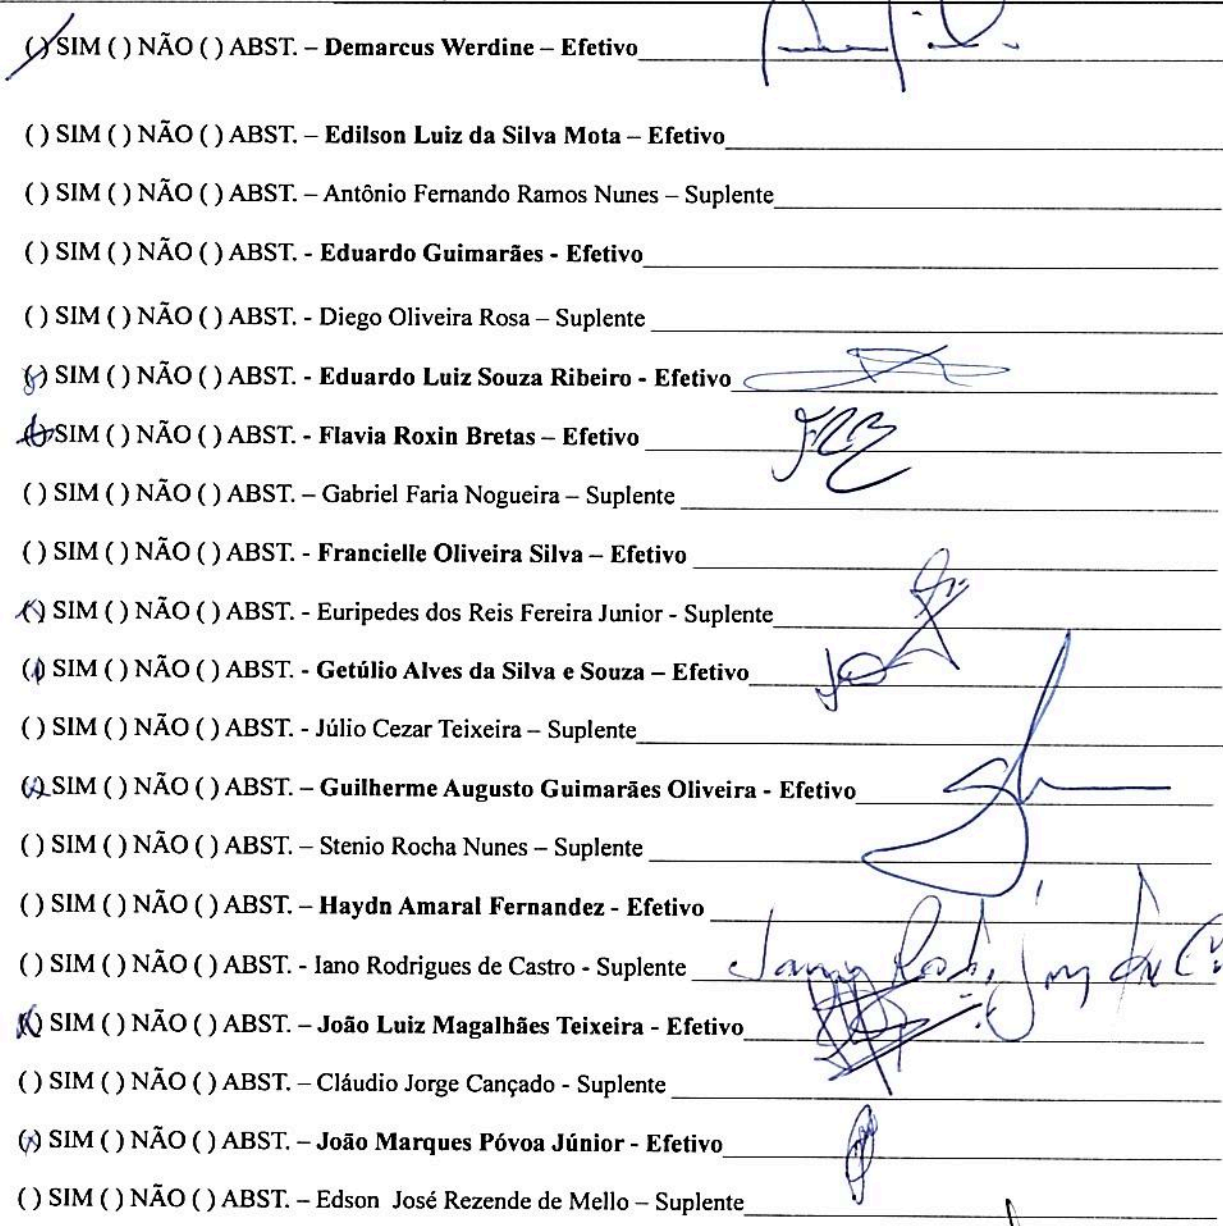 (/) SIM ( ) NÃO ( ) ABST. – Demarcus Werdine – Efetivo
( ) SIM ( ) NÃO ( ) ABST. – Edilson Luiz da Silva Mota – Efetivo
( ) SIM ( ) NÃO ( ) ABST. – Antônio Fernando Ramos Nunes – Suplente
( ) SIM ( ) NÃO ( ) ABST. - Eduardo Guimarães - Efetivo
( ) SIM ( ) NÃO ( ) ABST. - Diego Oliveira Rosa – Suplente
(x) SIM ( ) NÃO ( ) ABST. - Eduardo Luiz Souza Ribeiro - Efetivo
(x) SIM ( ) NÃO ( ) ABST. - Flavia Roxin Bretas – Efetivo FRB
( ) SIM ( ) NÃO ( ) ABST. – Gabriel Faria Nogueira – Suplente
( ) SIM ( ) NÃO ( ) ABST. - Francielle Oliveira Silva – Efetivo
(x) SIM ( ) NÃO ( ) ABST. - Euripedes dos Reis Fereira Junior - Suplente
(x) SIM ( ) NÃO ( ) ABST. - Getúlio Alves da Silva e Souza – Efetivo
( ) SIM ( ) NÃO ( ) ABST. - Júlio Cezar Teixeira – Suplente
(x) SIM ( ) NÃO ( ) ABST. – Guilherme Augusto Guimarães Oliveira - Efetivo
( ) SIM ( ) NÃO ( ) ABST. – Stenio Rocha Nunes – Suplente
( ) SIM ( ) NÃO ( ) ABST. – Haydn Amaral Fernandez - Efetivo
( ) SIM ( ) NÃO ( ) ABST. - Iano Rodrigues de Castro - Suplente
(x) SIM ( ) NÃO ( ) ABST. – João Luiz Magalhães Teixeira - Efetivo
( ) SIM ( ) NÃO ( ) ABST. – Cláudio Jorge Cançado - Suplente
(x) SIM ( ) NÃO ( ) ABST. – João Marques Póvoa Júnior - Efetivo
( ) SIM ( ) NÃO ( ) ABST. – Edson José Rezende de Mello – Suplente